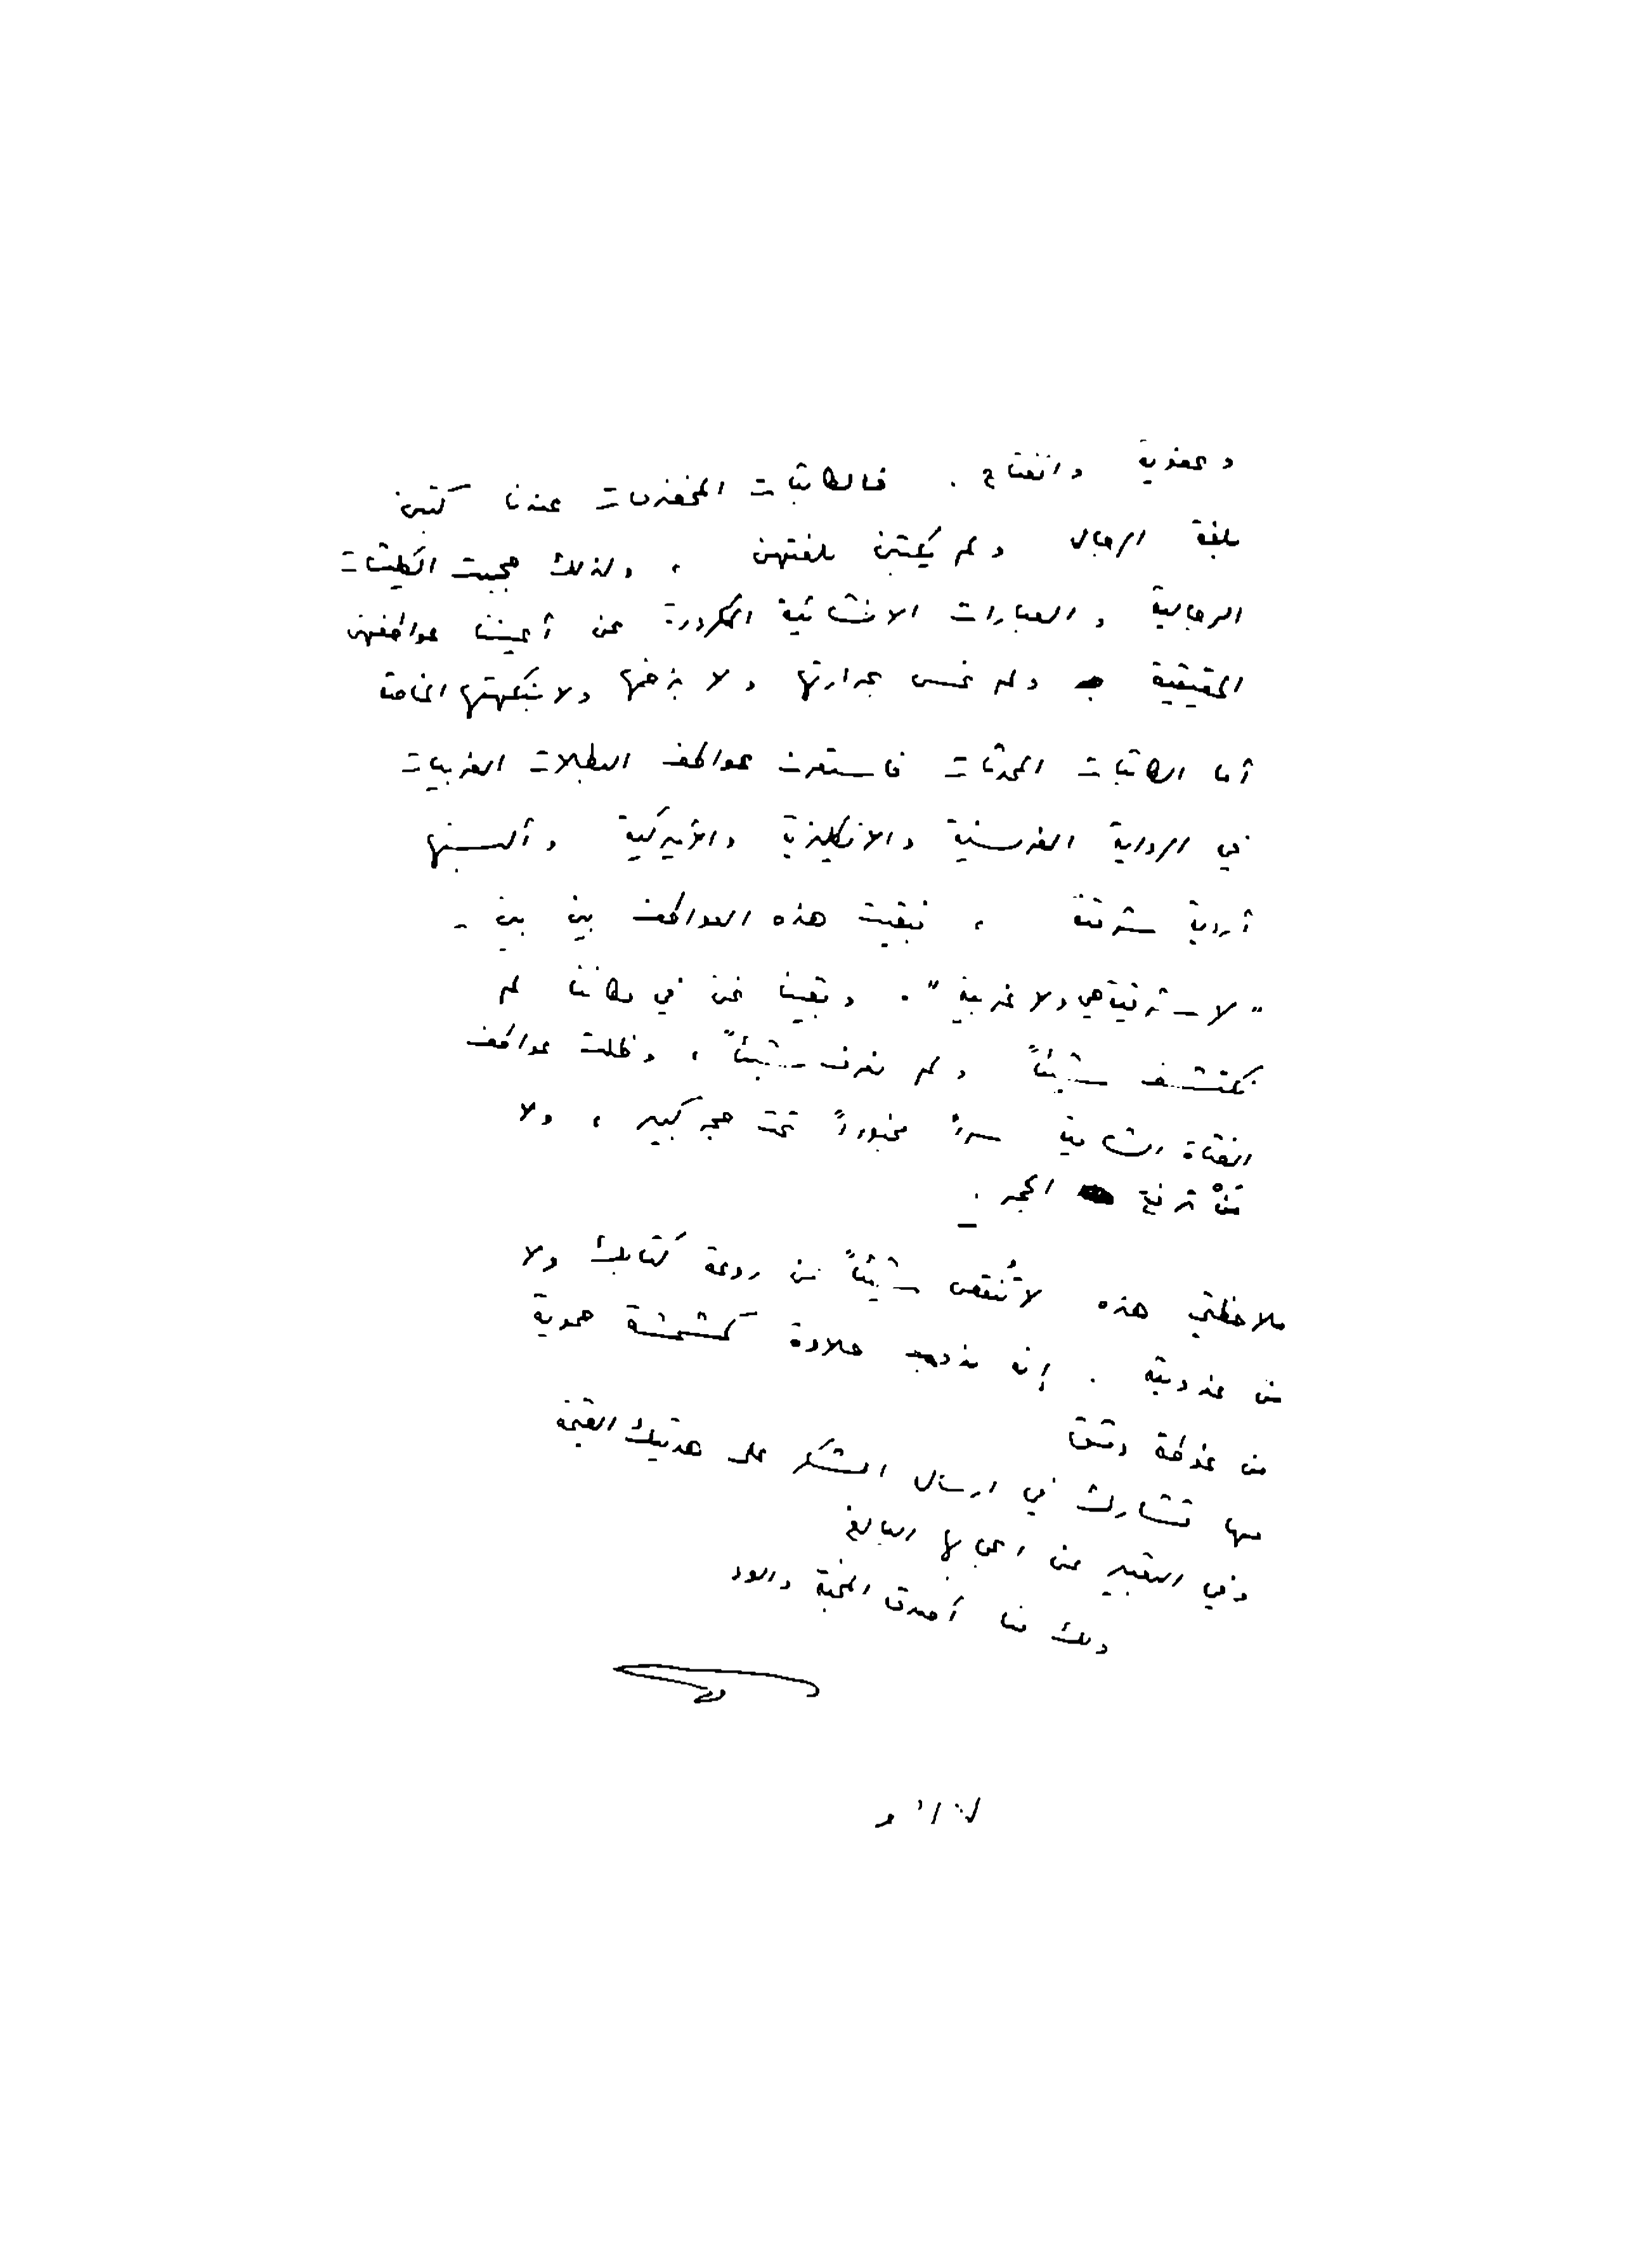 وعفوية وانفتاح . فالكاتبات المخضرمات عندنا كتبن
بلغة الرجال ولم يكتبن بلغتهن ، ولذلك حجبت الكليشات
الرجالية والعبارات الانشائية المكرورة عن أعيننا عواطفهن
الحقيقية ولم نحس بحرارتها ولا بزخمها ولا بنكهتها الخاصة
أما الكاتبات المحدثات فاستعرن عواطف البطلات الغربيات
في الرواية الفرنسية والانكليزية والأميركية وألبسنها
أردية شرقية ، فبقيت هذه العواطف بين بين -
" لا شرقية هي ولا غربية " . وبقينا نحن في مكاننا لم
نكتشف شيئاً ولم نعرف شيئاً ، وظلت عواطف
الفتاة الشامية سراً مخبوءاً تحت حجر كبير ، ولا
مَنْ ترفع الحجر .
ملاحظتي هذه لا تُنقص شيئاً من روعة كتابك ولا
من عذوبته . إنه يذوب حلاوة كمشمشة حموية
من غوطة دمشق
مها تشارك في ارسال الشكر على هديتك القيمة
وفي التعبير عن اعجابها البالغ
ولك منا أصدق المحبة والود